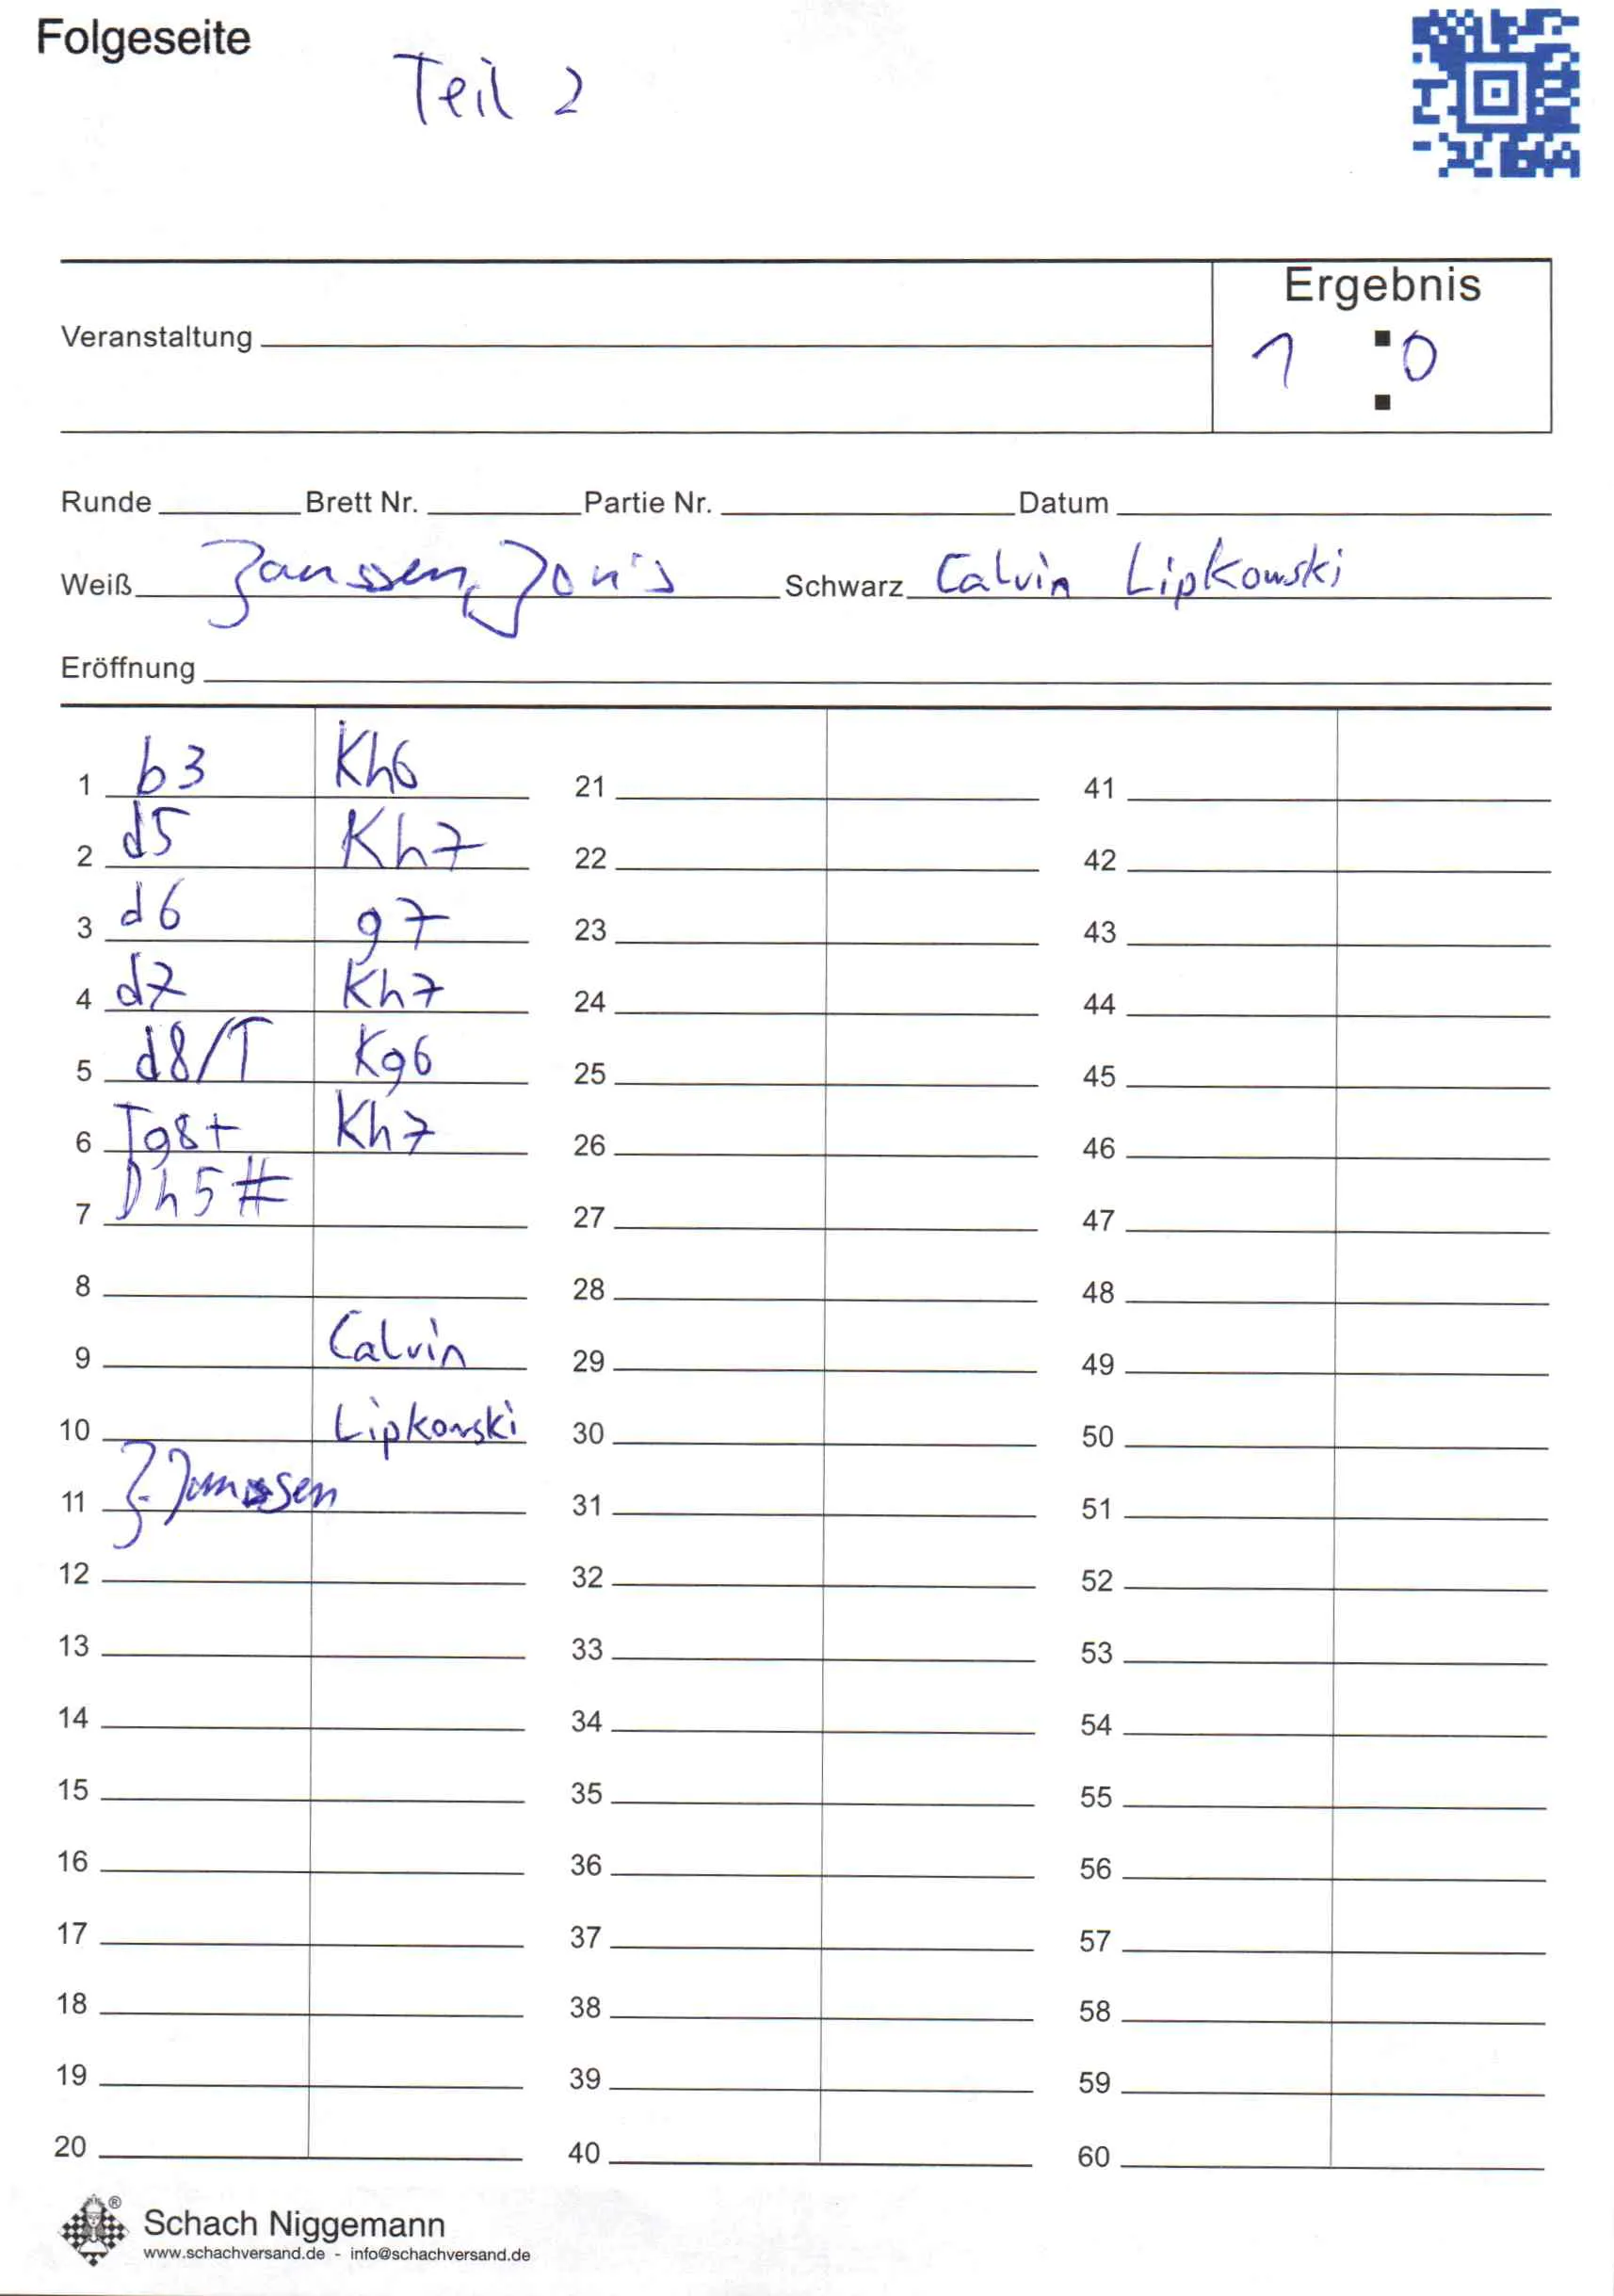 Folgeseite
Teil 2
Ergebnis
1 : 0
Veranstaltung
Runde Brett Nr. Partie Nr. Datum
Weiß Janssen, Jonis Schwarz Calvin Lipkowski
Eröffnung
1 b3 Kh6 21 41
2 d5 Kh7 22 42
3 d6 g7 23 43
4 d7 Kh7 24 44
5 d8/T Kg6 25 45
6 Tg8+ Kh7 26 46
7 Dh5# 27 47
8 28 48
9 Calvin 29 49
10 Lipkowski 30 50
11 J. Janssen 31 51
12 32 52
13 33 53
14 34 54
15 35 55
16 36 56
17 37 57
18 38 58
19 39 59
20 40 60
® Schach Niggemann
www.schachversand.de - info@schachversand.de